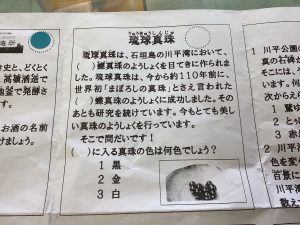 造所
史と、どく
常圧酒釜で
釜で発酵さ
す。
お酒の名前
けましょう。
りゅうきゅうしんじゅ
琉球真珠
琉球真珠は、石垣島の川平湾において、
( )蝶真珠のようしょくを目てきに作られ
ました。琉球真珠は、今から約110年前に、
世界初「まぼろしの真珠」とさえ言われた
( )蝶真珠のようしょくに成功しました。そ
のあとも研究を続けています。今もとても美し
い真珠のようしょくを行っています。
そこで問だいです！
( )に入る真珠の色は何色でしょう？
1 黒
2 金
3 白
川平公園の
真の石碑か
そこには、
います。何
次からえら
1 鷲
2
3
4